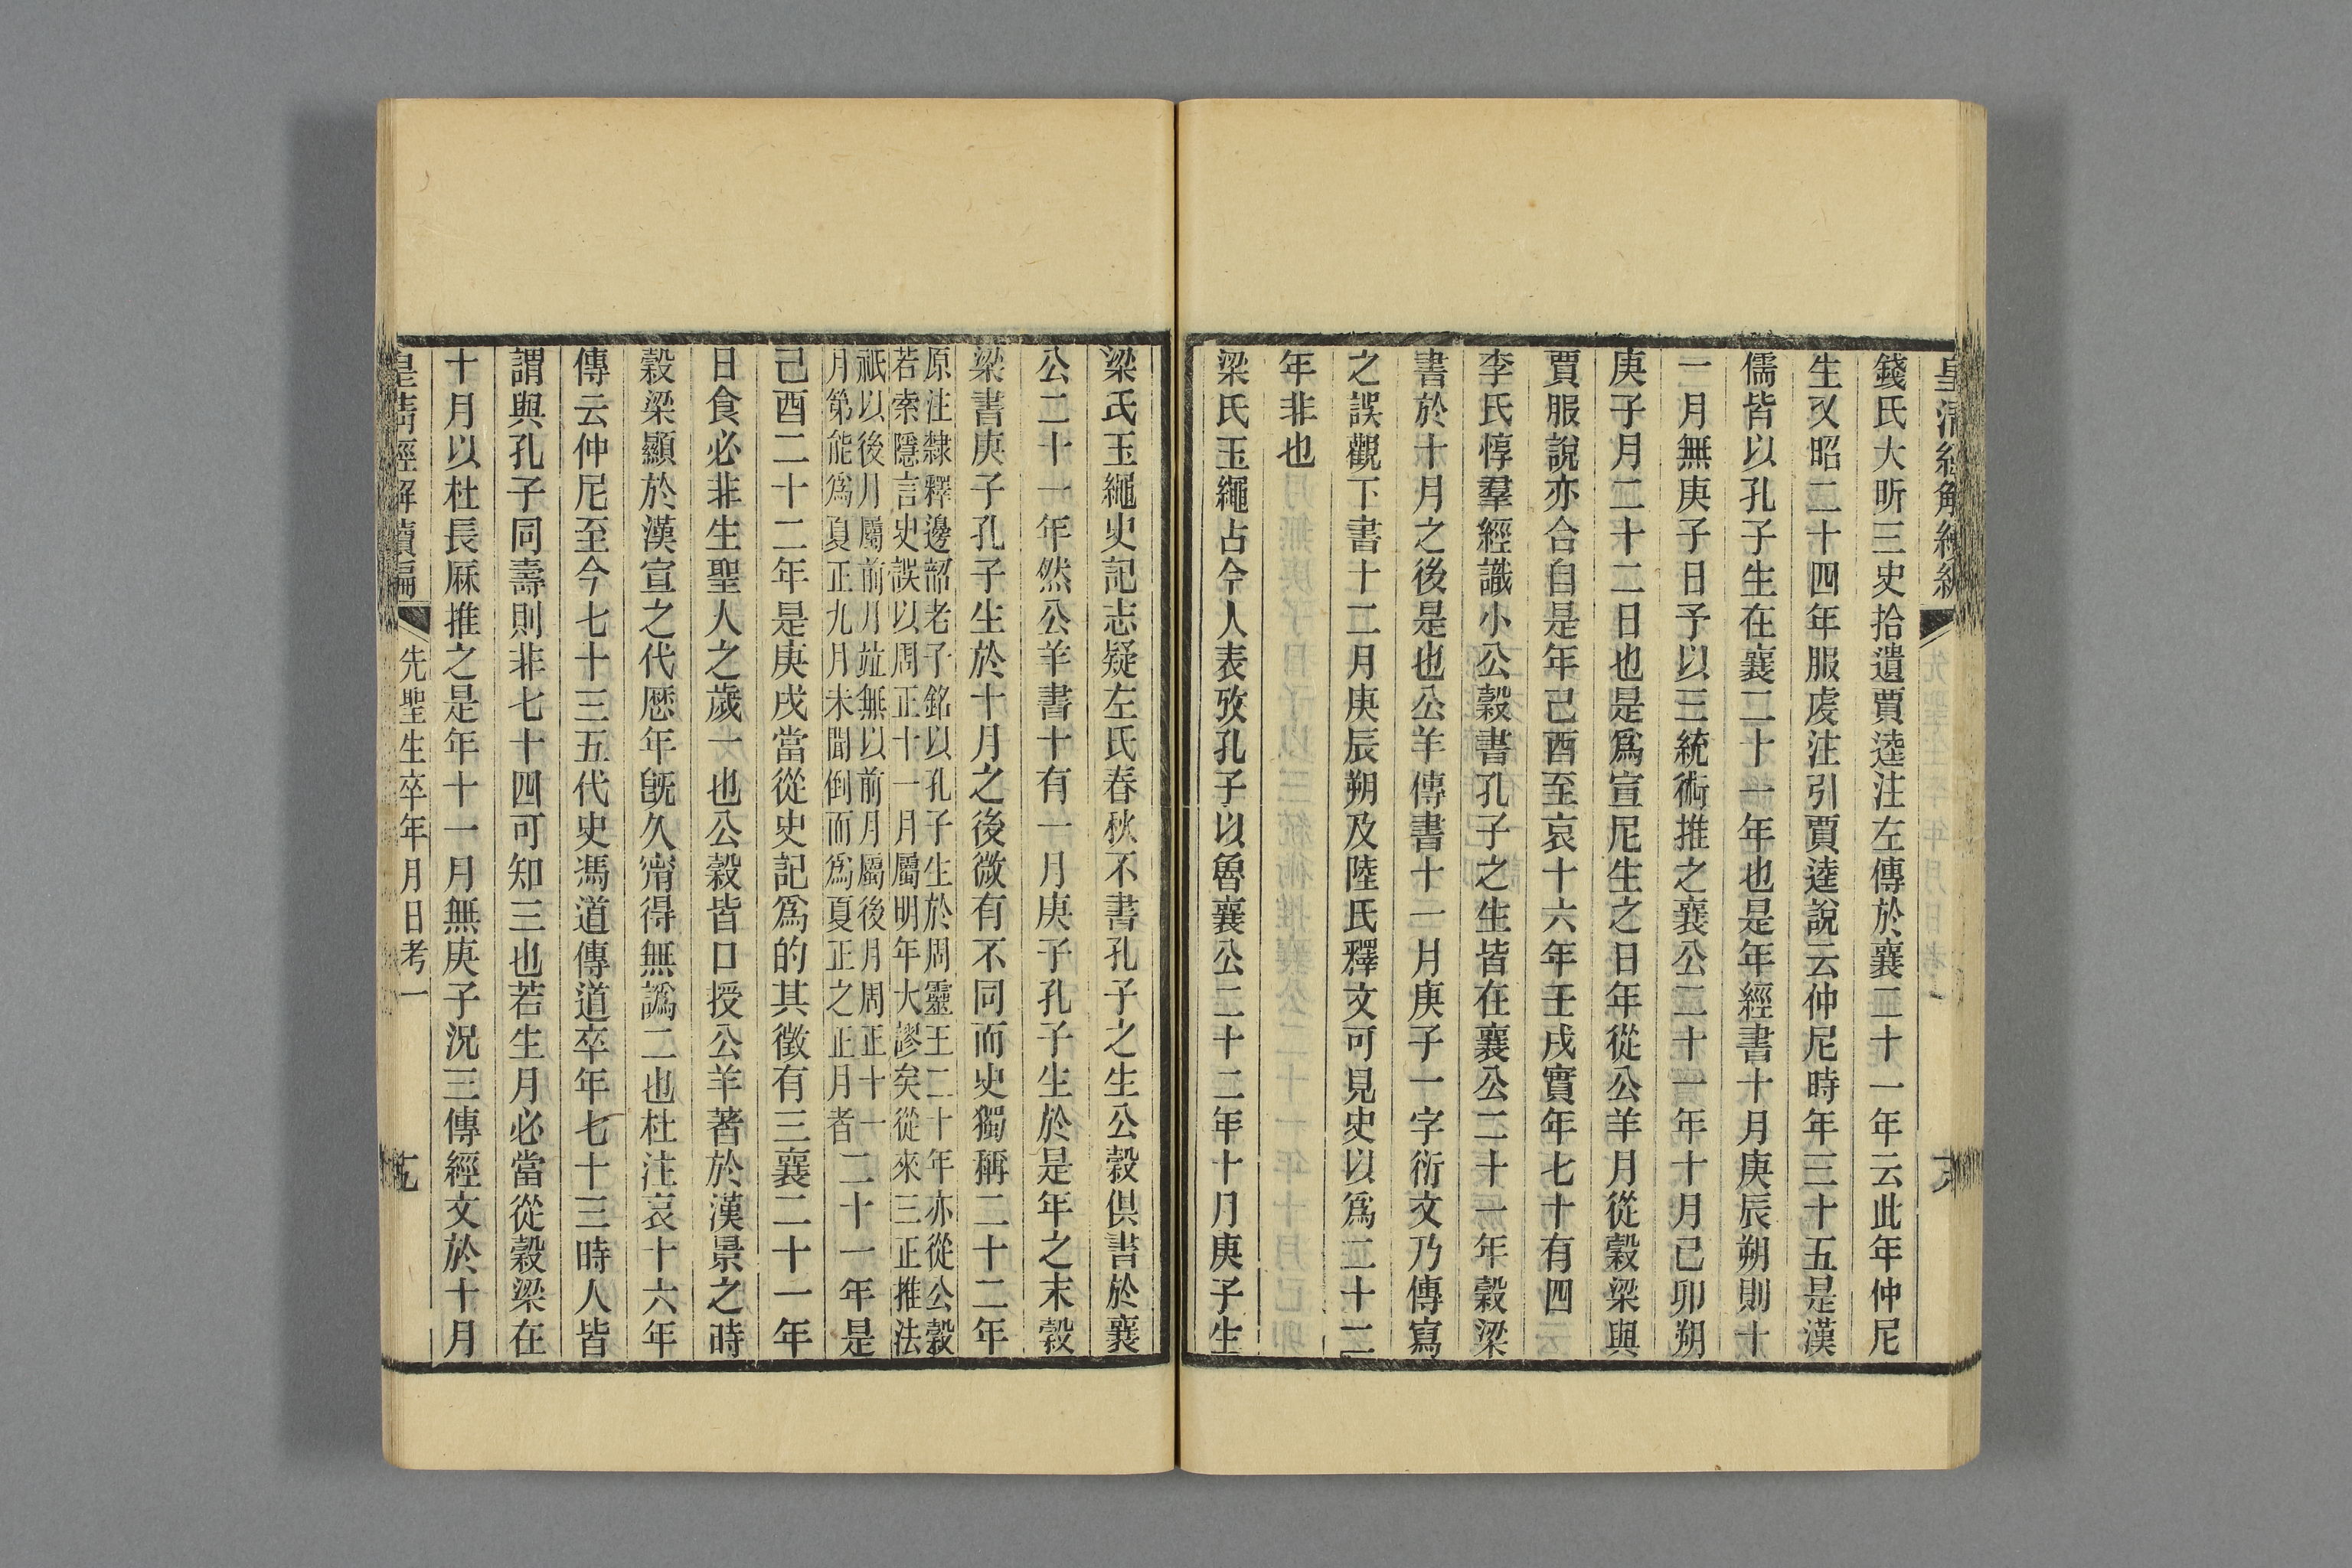 錢氏大昕三史拾遺賈逵注左傳於襄二十一年云此年仲尼
生又昭二十四年服虔注引賈逵說云仲尼時年三十五是漢
儒皆以孔子生在襄二十一年也是年經書十月庚辰朔則十
一月無庚子日予以三統術推之襄公二十一年十月己卯朔
庚子月二十二日也是爲宣尼生之日年從公羊月從穀梁與
賈服說亦合自是年己酉至哀十六年壬戌實年七十有四
李氏惇羣經識小公穀書孔子之生皆在襄公二十一年穀梁
書於十月之後是也公羊傳書十一月庚子一字衍文乃傳寫
之誤觀下書十二月庚辰朔及陸氏釋文可見史以爲二十二
年非也
梁氏玉繩古今人表攷孔子以魯襄公二十二年十月庚子生
梁氏玉繩史記志疑左氏春秋不書孔子之生公穀俱書於襄
公二十一年然公羊書十有一月庚子孔子生於是年之末穀
梁書庚子孔子生於十月之後微有不同而史獨稱二十二年
原注隸釋邊韶老子銘以孔子生於周靈王二十年亦從公穀
若索隱言史誤以周正十一月屬明年大謬矣從來三正推法
祇以後月屬前月竝無以前月屬後月周正十一
月第能爲夏正九月未聞倒而爲夏正之正月者
二十一年是
己酉二十二年是庚戌當從史記爲的其徵有三襄二十一年
日食必非生聖人之歲一也公穀皆口授公羊著於漢景之時
穀梁顯於漢宣之代歷年旣久甯得無譌二也杜注哀十六年
傳云仲尼至今七十三五代史馮道傳道卒年七十三時人皆
謂與孔子同壽則非七十四可知三也若生月必當從穀梁在
十月以杜長厤推之是年十一月無庚子況三傳經文於十月
皇清經解續編
先聖生卒年月日考一